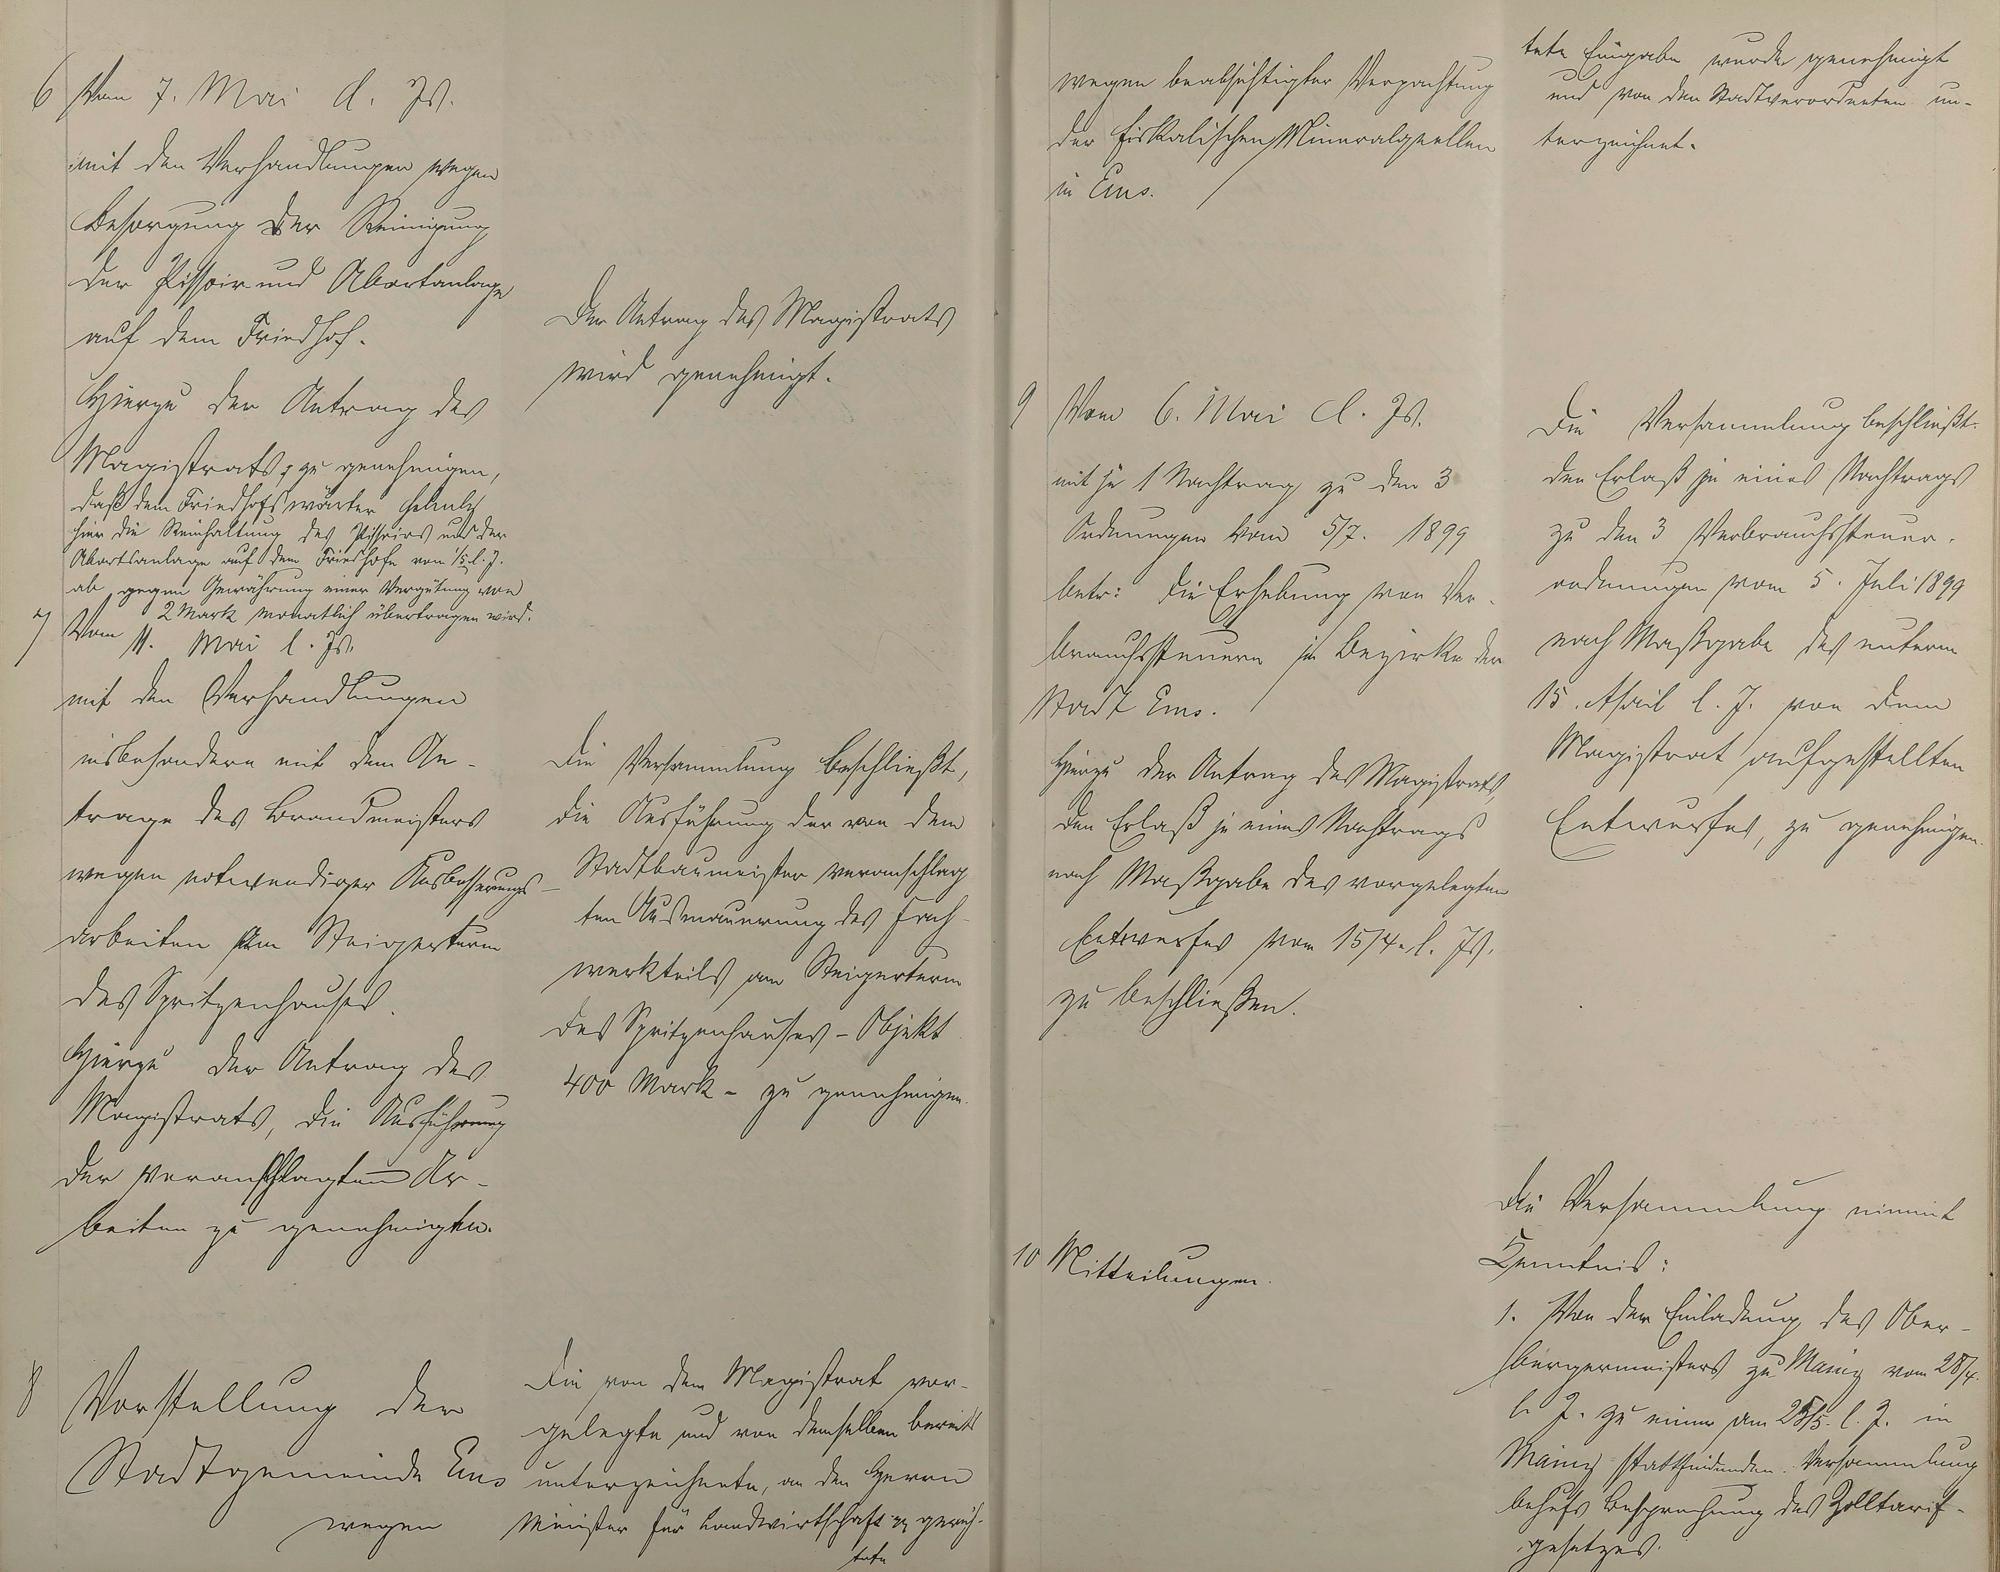 6 Vom 7. Mai d. Js.
mit den Verhandlungen wegen
Besorgung der Reinigung
der Pissoir und Abortanlage
auf dem Friedhof.
Hierzu der Antrag des
Magistrats, zu genehmigen,
daß dem Friedhofswärter
hier die Reinhaltung des Pissoirs und der
Abortsanlage auf dem Friedhofe vom 1/5 l. J.
ab gegen Gewährung einer Vergütung von
2 Mark monatlich übertragen wird.
Der Antrag des Magistrats
wird genehmigt.
7 Vom 11. Mai l. Js.
mit den Verhandlungen
insbesondere mit dem An-
trage des Brandmeisters
wegen notwendiger Ausbesserungs-
arbeiten am Steigerturm
des Spritzenhauses.
Hierzu der Antrag des
Magistrats, die Ausführung
der veranschlagten Ar-
beiten zu genehmigen.
Die Versammlung beschließt,
die Ausführung der von dem
Stadtbaumeister veranschlag
ten Ausmauerung des Fach-
werkteils am Steigerturm
des Spritzenhauses - Objekt
400 Mark - zu genehmigen.
8 Vorstellung der
Stadtgemeinde Ems
wegen
Die von dem Magistrat vor-
gelegte und von demselben bereits
unterzeichnete, an den Herrn
Minister für Landwirtschaft pp gerich-
tete
wegen beabsichtigter Verpachtung
der fiskalischen Mineralquellen
in Ems.
tete Eingabe wurde genehmigt
und von den Stadtverordneten un-
terzeichnet.
9 Vom 6. Mai d. Js.
mit je 1 Nachtrag zu den 3
Ordnungen vom 5/7. 1899
betr: die Erhebung von Ver-
brauchssteuern im Bezirke der
Stadt Ems.
Hierzu der Antrag des Magistrats,
den Erlaß je eines Nachtrags
nach Maßgabe des vorgelegten
Entwurfes vom 15/4. l. Js.
zu beschließen.
Die Versammlung beschließt
den Erlaß je eines Nachtrags
zu den 3 Verbrauchssteuer-
ordnungen vom 5. Juli 1899
nach Maßgabe des unterm
15. April l. J. von dem
Magistrat aufgestellten
Entwurfes, zu genehmigen.
10 Mitteilungen.
Die Versammlung nimmt
Kenntnis:
1. Von der Einladung des Ober-
bürgermeisters zu Mainz vom 28/4.
l. J. zu einer am 25/5. l. J. in
Mainz stattfindenden Versammlung
behufs Besprechung des Zolltarif-
gesetzes.